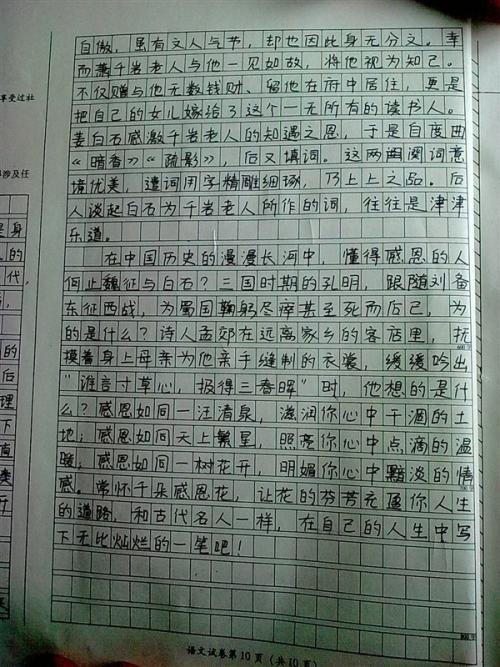 自傲，虽有文人气节，却也因此身无分文。幸
而萧千岩老人与他一见如故，将他视为知己。
不仅赠与他无数钱财、留他在府中居住，更是
把自己的女儿嫁给了这个一无所有的读书人。
姜白石感激千岩老人的知遇之恩，于是自度曲
《暗香》《疏影》，后又填词。这两阕词意
境优美，遣词用字精雕细琢，乃上上之品。后
人谈起白石为千岩老人所作的词，往往是津津
乐道。
在中国历史的漫漫长河中，懂得感恩的人
何止魏征与白石？三国时期的孔明，跟随刘备
东征西战，为蜀国鞠躬尽瘁甚至死而后已，为
的是什么？诗人孟郊在远离家乡的客店里，抚
摸着身上母亲为他亲手缝制的衣裳，缓缓吟出
“谁言寸草心，报得三春晖”时，他想的是什
么？感恩如同一汪清泉，滋润你心中干涸的土
地；感恩如同天上繁星，照亮你心中点滴的温
暖；感恩如同一树花开，明媚你心中黯淡的情
感。常怀千朵感恩花，让花的芬芳充盈你人生
的道路，和古代名人一样，在自己的人生中写
下无比灿烂的一笔吧！
600字
700字
800字
语文试卷第10页（共10页）
享受过社
涉及任
是身
人的
代，
的
后
理
下
直
卖
开